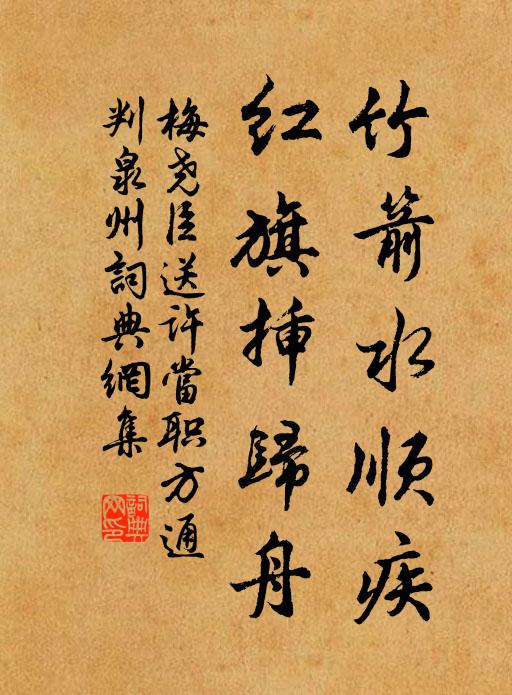 竹箭水順疾
紅旗挿歸舟
梅堯臣送许當职方通
判泉州詞典網集
詞典網印